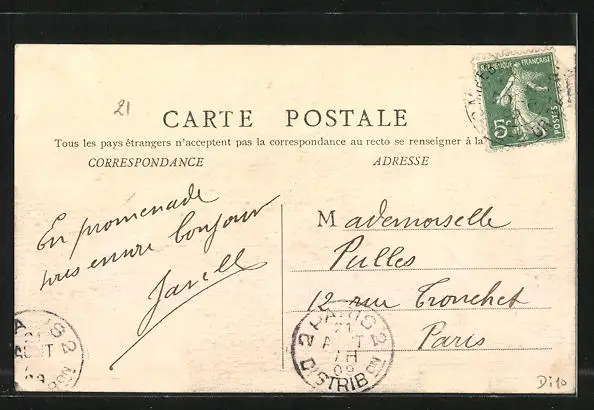 21
RÉPUBLIQUE FRANÇAISE
5c
POSTES
CARTE POSTALE
Tous les pays étrangers n'acceptent pas la correspondance au recto se renseigner à la
CORRESPONDANCE
ADRESSE
En promenade
bonjour
Mademoiselle
Pulles
12 rue Tronchet
Paris
PARIS 2
21
AOUT
7H
09
DISTRIBON
Di 10